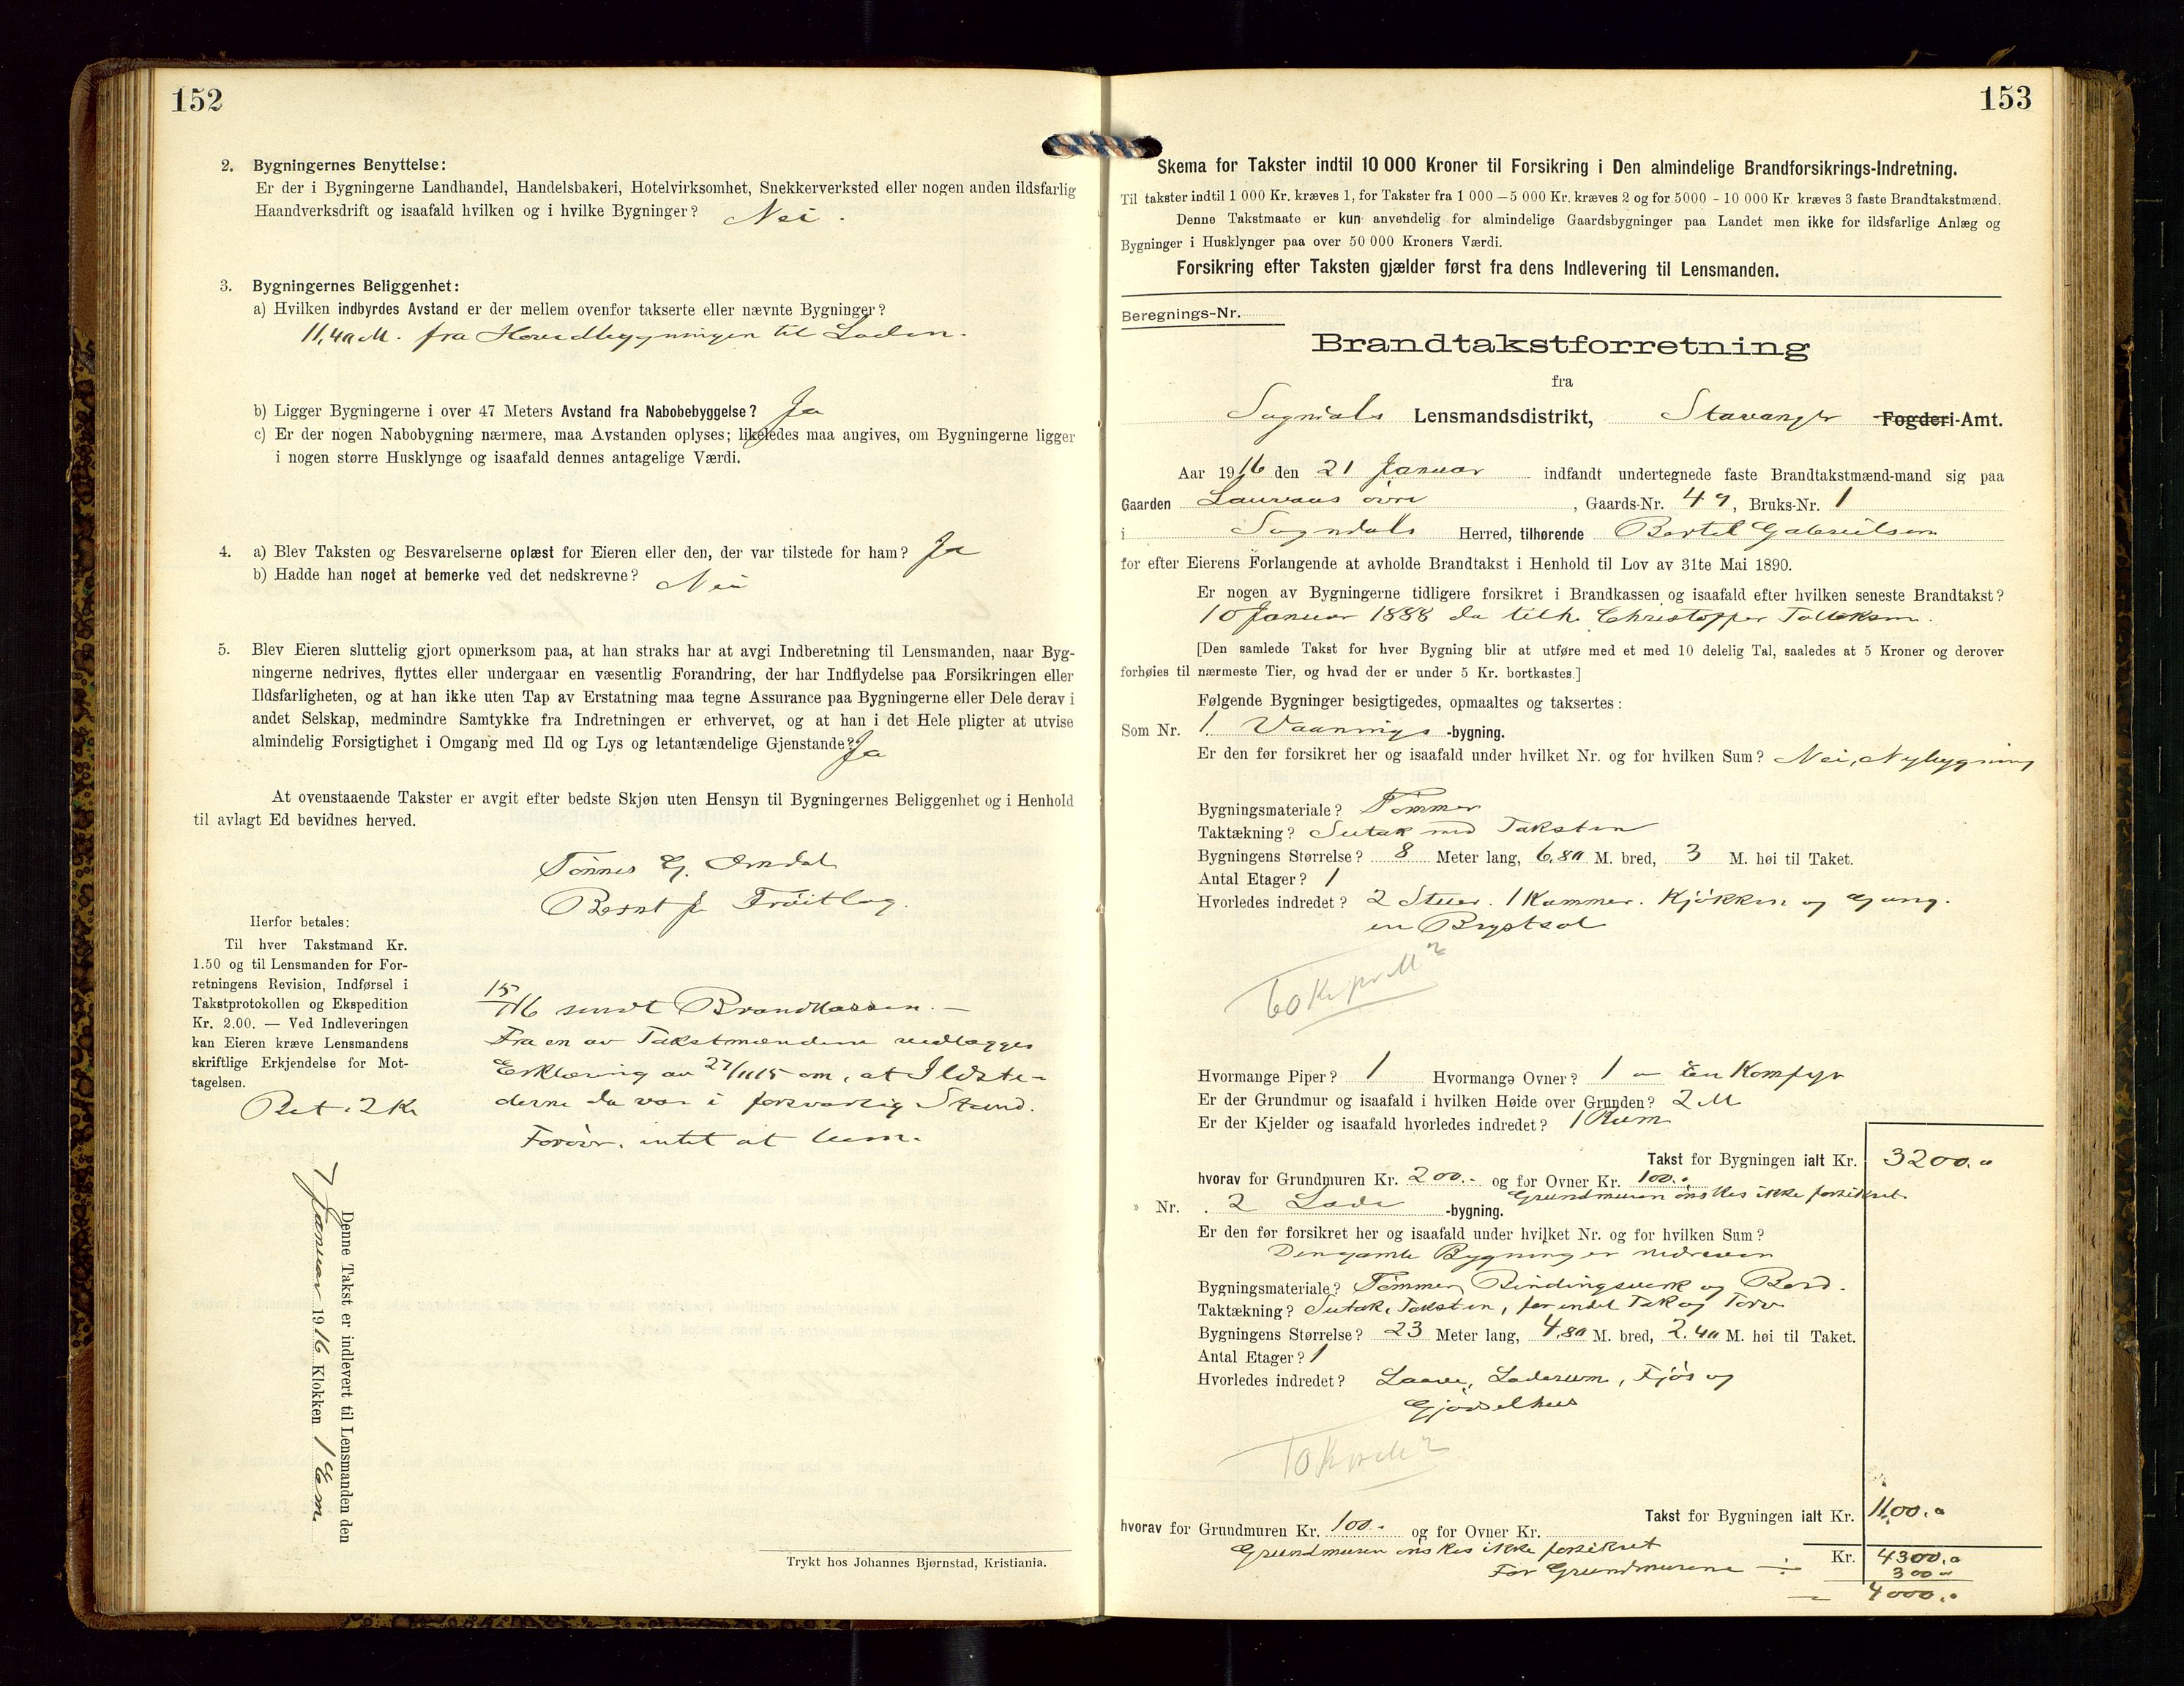 152
2. Bygningernes Benyttelse:
Er der i Bygningerne Landhandel, Handelsbakeri, Hotelvirksomhet, Snekkerverksted eller nogen anden ildsfarlig
Haandverksdrift og isaafald hvilken og i hvilke Bygninger? Nei.
3. Bygningernes Beliggenhet:
a) Hvilken indbyrdes Avstand er der mellem ovenfor takserte eller nævnte Bygninger?
11,40 M. fra Hovedbygningen til Laden.
b) Ligger Bygningerne i over 47 Meters Avstand fra Nabobebyggelse? Ja
c) Er der nogen Nabobygning nærmere, maa Avstanden oplyses; likeledes maa angives, om Bygningerne ligger
i nogen større Husklynge og isaafald dennes antagelige Værdi.
4. a) Blev Taksten og Besvarelserne oplæst for Eieren eller den, der var tilstede for ham? Ja
b) Hadde han noget at bemerke ved det nedskrevne? Nei
5. Blev Eieren sluttelig gjort opmerksom paa, at han straks har at avgi Indberetning til Lensmanden, naar Byg-
ningerne nedrives, flyttes eller undergaar en væsentlig Forandring, der har Indflydelse paa Forsikringen eller
Ildsfarligheten, og at han ikke uten Tap av Erstatning maa tegne Assurance paa Bygningerne eller Dele derav i
andet Selskap, medmindre Samtykke fra Indretningen er erhvervet, og at han i det Hele pligter at utvise
almindelig Forsigtighet i Omgang med Ild og Lys og letantændelige Gjenstande? Ja
At ovenstaaende Takster er avgit efter bedste Skjøn uten Hensyn til Bygningernes Beliggenhet og i Henhold
til avlagt Ed bevidnes herved.
Tønnes G. Omdal
Bernt J. Frøitlog.
Herfor betales:
Til hver Takstmand Kr.
1.50 og til Lensmanden for For-
retningens Revision, Indførsel i
Takstprotokollen og Ekspedition
Kr. 2.00. — Ved Indleveringen
kan Eieren kræve Lensmandens
skriftlige Erkjendelse for Mot-
tagelsen.
Bet. 2 Kr
sendt Brandkassen. —
Fra en av Takstmændene vedlægges
Erklæring av 27/11 15 om, at Ildste-
derne da var i forsvarlig Stand.
Forøvr. intet at bem.
Denne Takst er indlevert til Lensmanden den
7 Januar 1916 Klokken 1 Em.
Trykt hos Johannes Bjørnstad, Kristiania.
153
Skema for Takster indtil 10 000 Kroner til Forsikring i Den almindelige Brandforsikrings-Indretning.
Til takster indtil 1 000 Kr. kræves 1, for Takster fra 1 000 — 5 000 Kr. kræves 2 og for 5000 - 10 000 Kr. kræves 3 faste Brandtakstmænd.
Denne Takstmaate er kun anvendelig for almindelige Gaardsbygninger paa Landet men ikke for ildsfarlige Anlæg og
Bygninger i Husklynger paa over 50 000 Kroners Værdi.
Forsikring efter Taksten gjælder først fra dens Indlevering til Lensmanden.
Beregnings-Nr.
Brandtakstforretning
fra
Sogndals Lensmandsdistrikt, Stavanger Fogderi-Amt.
Aar 1916 den 21 Januar indfandt undertegnede faste Brandtakstmænd-mand sig paa
Gaarden Laureaas øvre, Gaards-Nr. 49, Bruks-Nr. 1
i Sogndals Herred, tilhørende Bertel Gabrielsen
for efter Eierens Forlangende at avholde Brandtakst i Henhold til Lov av 31te Mai 1890.
Er nogen av Bygningerne tidligere forsikret i Brandkassen og isaafald efter hvilken seneste Brandtakst?
10 Januar 1888 da tilh. Christoffer Tolleksen.
[Den samlede Takst for hver Bygning blir at utføre med et med 10 delelig Tal, saaledes at 5 Kroner og derover
forhøies til nærmeste Tier, og hvad der er under 5 Kr. bortkastes.]
Følgende Bygninger besigtigedes, opmaaltes og taksertes:
Som Nr. 1. Vaanings -bygning.
Er den før forsikret her og isaafald under hvilket Nr. og for hvilken Sum? Nei, Nybygning
Bygningsmateriale? Tømmer
Taktækning? Sutak med Taksten
Bygningens Størrelse? 8 Meter lang, 6,80 M. bred, 3 M. høi til Taket.
Antal Etager? 1
Hvorledes indredet? 2 Stuer. 1 Kammer. Kjøkken og Gang.
en Brystsal
60 Kr pr M2
Hvormange Piper? 1 Hvormange Ovner? 1 - En Komfyr
Er der Grundmur og isaafald i hvilken Høide over Grunden? 2 M
Er der Kjelder og isaafald hvorledes indredet? 1 Rum
Takst for Bygningen ialt Kr. 3200.-
hvorav for Grundmuren Kr. 200.- og for Ovner Kr. 100.-
Grundmuren ønskes ikke forsikret
» Nr. 2 Lade -bygning.
Er den før forsikret her og isaafald under hvilket Nr. og for hvilken Sum?
Den gamle Bygning er nedreven
Bygningsmateriale? Tømmer, Bindingsverk og Bord.
Taktækning? Sutak, Taksten, for endel Tak og Torv
Bygningens Størrelse? 23 Meter lang, 4,80 M. bred, 2.40 M. høi til Taket.
Antal Etager? 1
Hvorledes indredet? Laave, Laderum, Fjøs og
Gjødselhus
10 Kr pr M2
Takst for Bygningen ialt Kr. 1100.-
hvorav for Grundmuren Kr. 100.- og for Ovner Kr.
Grundmuren ønskes ikke forsikret
Kr. 4300.-
For Grundmurene ÷ 300 -
4000.-